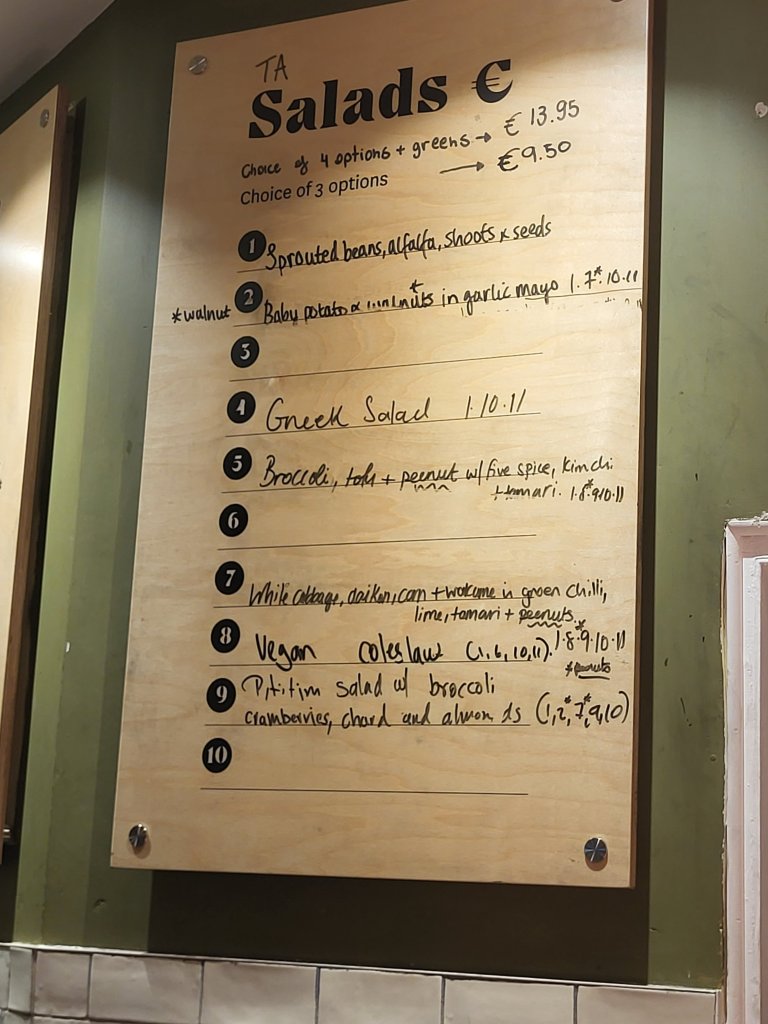 TA
Salads €
Choice of 4 options + greens → € 13.95
Choice of 3 options → €9.50
1 Sprouted beans, alfalfa, shoots x seeds
*walnut 2 Baby potato x walnuts* in garlic mayo 1.7*.10.11
3
4 Greek Salad 1.10.11
5 Broccoli, tofu + peenut w/ five spice, kimchi
+ tamari. 1.8*.9.10.11
6
7 White cabbage, daikon, corn + wakame in green chilli,
lime, tamari + peenuts
8 Vegan coleslaw (1, 6, 10, 11). 1.8*.9.10.11
*peenuts
9 Ptitim salad w/ broccoli
cramberries, chard and almonds (1, 2*, 7*, 9, 10)
10